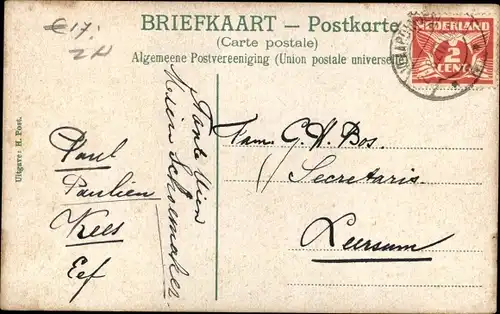 € 17,-
BRIEFKAART — Postkarte
(Carte postale)
Algemeene Postvereeniging (Union postale universel
NEDERLAND
2
CENT
Uitgave: H. Post.
Paul
Paulien
Kees
Eef
Tante Mien
Mein Schoemaker
Fam. G. H. Bos.
Secretaris
Leersum